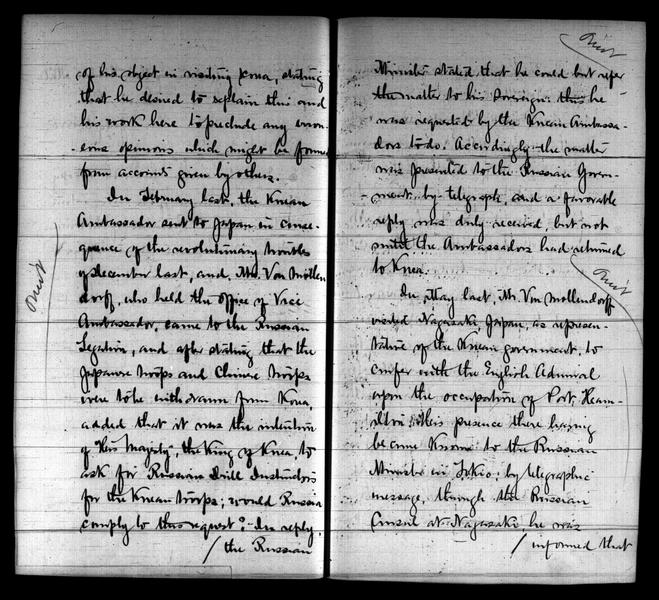 of his object in visiting Korea, stating
that he desired to explain this and
his work here to preclude any erron-
eous opinions which might be formed
from accounts given by others.
In February last, the Korean
Ambassador sent to Japan in conse-
quence of the revolutionary troubles
of december last, and Mr. Von Möllen
dorff, who held the office of Vice
Ambassador, came to the Russian
Legation, and after stating that the
Japanese troops and Chinese troops
were to be withdrawn from Korea,
added that it was the intention
of "His Majesty", the King of Korea, to
ask for Russian Drill Instructors
for the Korean troops; would Russia
comply to this request? In reply,
/ the Russian
Minister stated that he could but refer
the matter to his Sovereign this he
was requested by the Korean Ambassa-
dors to do. Accordingly the matter
was presented to the Russian Govern-
ment, by telegraph, and a favorable
reply was duly received, but not
until the Ambassadors had returned
to Korea.
In May last, Mr. Von Mollendorff
visited Nagasaki, Japan, as represen-
tative of the Korean government, to
confer with the English Admiral
upon the occupation of Port Ham-
ilton. His presence there having
become known to the Russian
Minister in Tokio; by telegraphic
message, through the Russian
Consul at Nagasaki he was
/ informed that